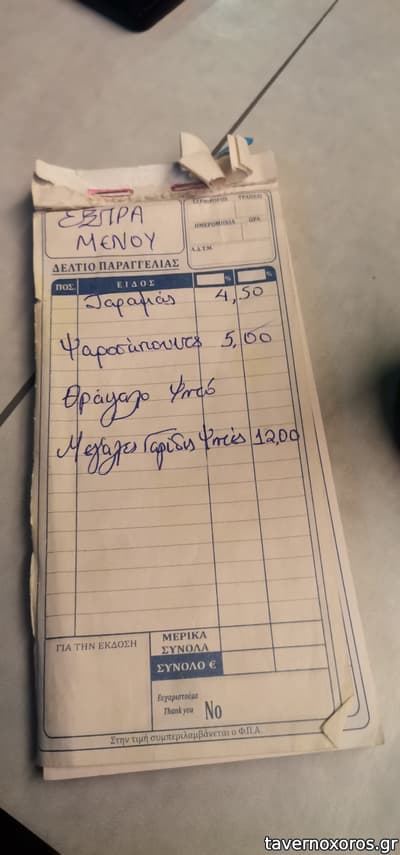 ΕΞΠΡΑ
ΜΕΝΟΥ
ΣΕΡΒΙΤΟΡΟΣ ΤΡΑΠΕΖΙ
ΗΜΕΡΟΜΗΝΙΑ ΩΡΑ
Α.Δ.Τ.Μ.
ΔΕΛΤΙΟ ΠΑΡΑΓΓΕΛΙΑΣ
ΠΟΣ. ΕΙΔΟΣ % %
Ταραμάς 4,50
Ψαροσουπούντες 5,00
Θράψαλο Ψητό
Μεγάλες Γαρίδες Ψητές 12,00
ΓΙΑ ΤΗΝ ΕΚΔΟΣΗ
ΜΕΡΙΚΑ
ΣΥΝΟΛΑ
ΣΥΝΟΛΟ €
Ευχαριστούμε
Thank you No
Στην τιμή συμπεριλαμβάνεται ο Φ.Π.Α.
tavernoxoros.gr